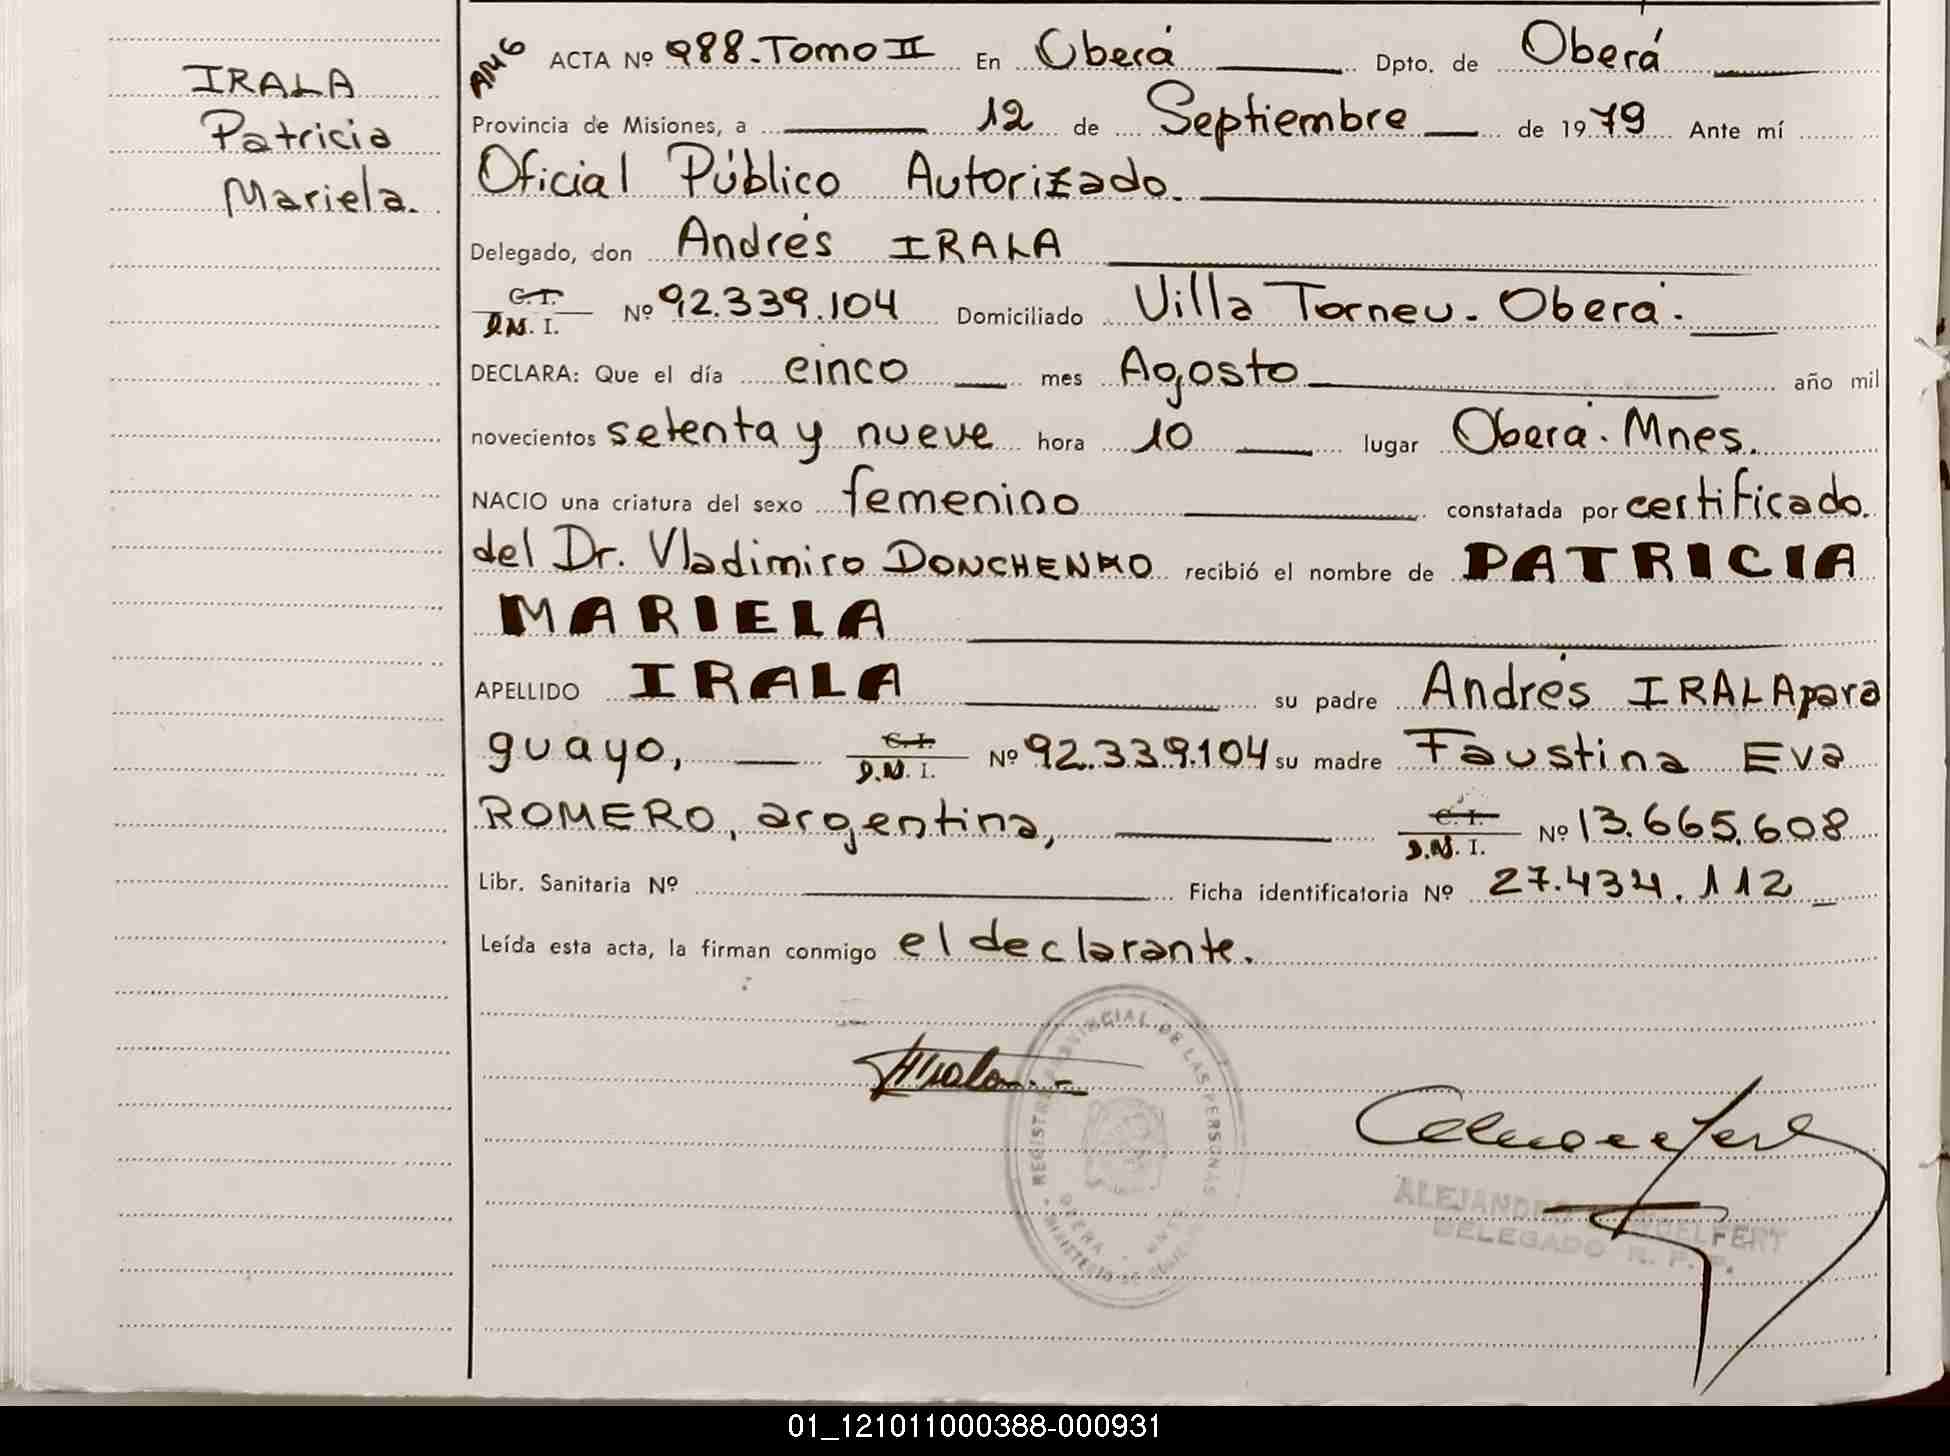 IRALA
Patricia
Mariela.
ACTA Nº 988.Tomo II En Oberá Dpto. de Oberá
Provincia de Misiones, a 12 de Septiembre de 1979 Ante mí
Oficial Público Autorizado.
Delegado, don Andrés IRALA
C.I.
D.N.I. Nº 92.339.104 Domiciliado Villa Torneu. Oberá.
DECLARA: Que el día cinco mes Agosto año mil
novecientos setenta y nueve hora 10 lugar Oberá. Mnes.
NACIO una criatura del sexo femenino constatada por certificado
del Dr. Vladimiro DONCHENKO recibió el nombre de PATRICIA
MARIELA
APELLIDO IRALA su padre Andrés IRALA para
guayo, C.I. D.N.I. Nº 92.339.104 su madre Faustina Eva
ROMERO, argentina, C.I. D.N.I. Nº 13.665.608
Libr. Sanitaria Nº Ficha identificatoria Nº 27.434.112
Leída esta acta, la firman conmigo el declarante.
REGISTRO PROVINCIAL DE LAS PERSONAS
OBERA - MNES
MINISTERIO DE
ALEJANDRO
DELEGADO R. P. P.
01_121011000388-000931